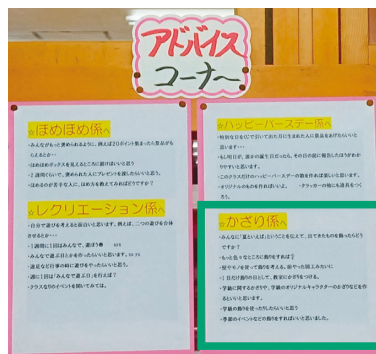 アドバイス
コーナー
☆ほめほめ係へ
・みんながもっと褒められるように、例えば20ポイント集まったら景品がも
らえるとか…
・ほめほめボックスを見えるところに掛けばいいと思う
・2週間ぐらいで、褒められた人にプレゼントを渡したらいいと思う。
・ほめるのが苦手な人に、ほめ方を教えてみればどうですか？
☆レクリエーション係へ
・自分で遊びを考えると面白いと思います。例えば、二つの遊びを合体
させるとか…
・1週間に1回はみんなで、遊ぼう
・みんなで遊ぶ日とかを作ったらいいと思います。
・遠足など行事の時に遊びをやったらいいと思う。
・週に1回は「みんなで遊ぶ日」を行えば？
・クラスなりのイベントを開いてみては。
☆ハッピーバースデー係へ
・特別な日なので
月に生まれた人に景品をあげたらいいと
思います…
・もし明日が、誰かの誕生日だったら、その日の前に報告したほうがわか
りやすいと思います。
・このクラスだけのハッピーバースデーの歌を作れば楽しいと思います。
・オリジナルのものを作ればいいよ。 ・クラッカーの他にも道具をつく
ろう。
☆かざり係へ
・みんなに「夏といえば」ということを伝えて、出てきたものを飾ったらどう
ですか？
・もっと色々なところに飾りをすれば
・使やモノを使って飾りを考える。前やった図工みたいに
・1日だけ飾りの日として、教室にかざりをつける。
・学級に関するかざりや、学級のオリジナルキャラクターのかざりなどを作
るといいと思います。
・学級の飾りを使ったりしたらいいと思う
・季節のイベントなどの飾りをすればいいと思いました。